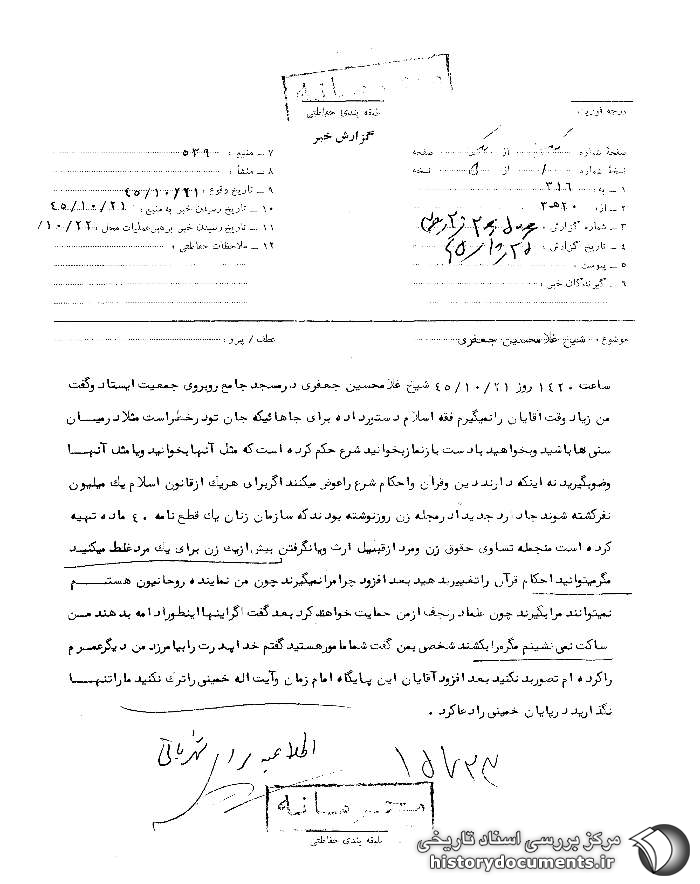 محرمانه
طبقه بندی حفاظتی
گزارش خبر
درجه فوریت :
صفحهٔ شماره یک از یک صفحه
نسخهٔ شماره ۱ از ۵ نسخه
۱ ـ به : ۳۱۶
۲ ـ از : ۳۰ﻫ۲۰
۳ ـ شماره گزارش :
۴ ـ تاریخ گزارش :
۵ ـ پیوست :
۶ ـ گیرندگان خبر :
۷ ـ منبع : ۵۳۹
۸ ـ منشأ :
۹ ـ تاریخ وقوع : ۴۵/۱۰/۲۱
۱۰ ـ تاریخ رسیدن خبر به منبع : ۴۵/۱۰/۲۱
۱۱ ـ تاریخ رسیدن خبر به رهبر عملیات محل : ۱۰/۲۲/
۱۲ ـ ملاحظات حفاظتی :
موضوع : شیخ غلامحسین جعفری
عطف / پیرو :
ساعت ۱۴۲۰ روز ۴۵/۱۰/۲۱ شیخ غلامحسین جعفری در مسجد جامع روبروی جمعیت ایستاد وگفت
من زیاد وقت آقایان را نمیگیرم فقه اسلام دستور داده برای جاهائیکه جان تو در خطر است مثلا در میان
سنی ها باشید وبخواهید با دست باز نماز بخوانید شرع حکم کرده است که مثل آنها بخوانید ویا مثل آنها
وضو بگیرید نه اینکه دارند دین وقرآن واحکام شرع راعوض میکنند اگر برای هر یک از قانون اسلام یک میلیون
نفر کشته شوند جا دارد جدیدا در مجله زن روز نوشته بودند که سازمان زنان یک قطع نامه ۴۰ ماده تهیه
کرده است منجمله تساوی حقوق زن ومرد از قبیل ارث ویا نگرفتن بیش از یک زن برای یک مرد غلط میکنید
مگر میتوانید احکام قرآن را تغییر دهید بعد افزود چرا مرا نمیگیرند چون من نماینده روحانیون هستم
نمیتوانند مرا بگیرند چون علماء در نجف از من حمایت خواهند کرد بعد گفت اگر اینها اینطور ادامه بدهند من
ساکت نمی نشینم مگر مرا بکشند شخصی بمن گفت شما مامور هستید گفتم خدا پدرت را بیامرزد من دیگر عمرم
را کرده ام تصور بد نکنید بعد افزود آقایان این پایگاه امام زمان وآیت اله خمینی را ترک نکنید ما را تنها
نگذارید در پایان خمینی را دعا کرد .
محرمانه
طبقه بندی حفاظتی
مرکز بررسی اسناد تاریخی
historydocuments.ir